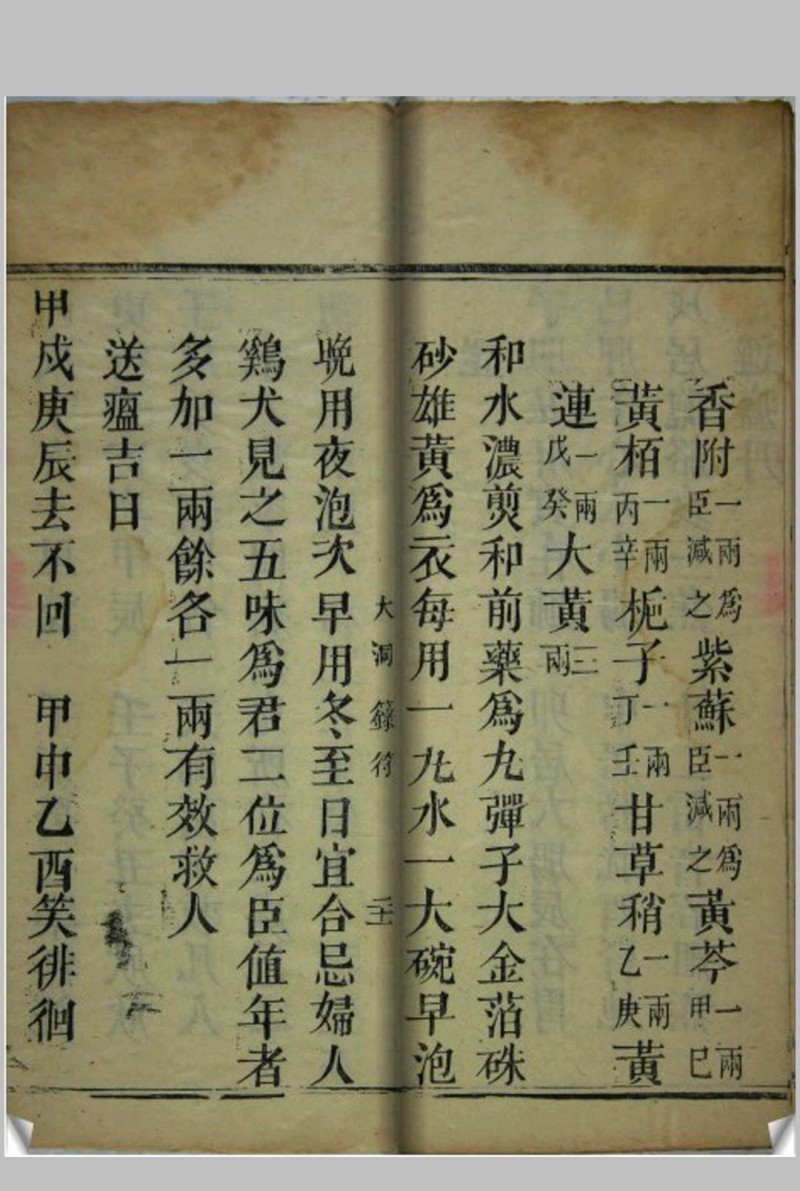 香附一兩爲臣減之紫蘇一兩爲臣減之黃芩一兩甲巳
黃栢一兩丙辛梔子一兩丁壬甘草稍一兩乙庚黃
連一兩戊癸大黃三兩
和水濃煎和前藥爲九彈子大金箔硃
砂雄黃爲衣每用一九水一大碗早泡
大洞籙符
晩用夜泡次早用冬至日宜合忌婦人
鷄犬見之五味爲君二位爲臣值年者
多加一兩餘各一兩有效救人
送瘟吉日
甲戍庚辰去不回 甲申乙酉笑徘徊